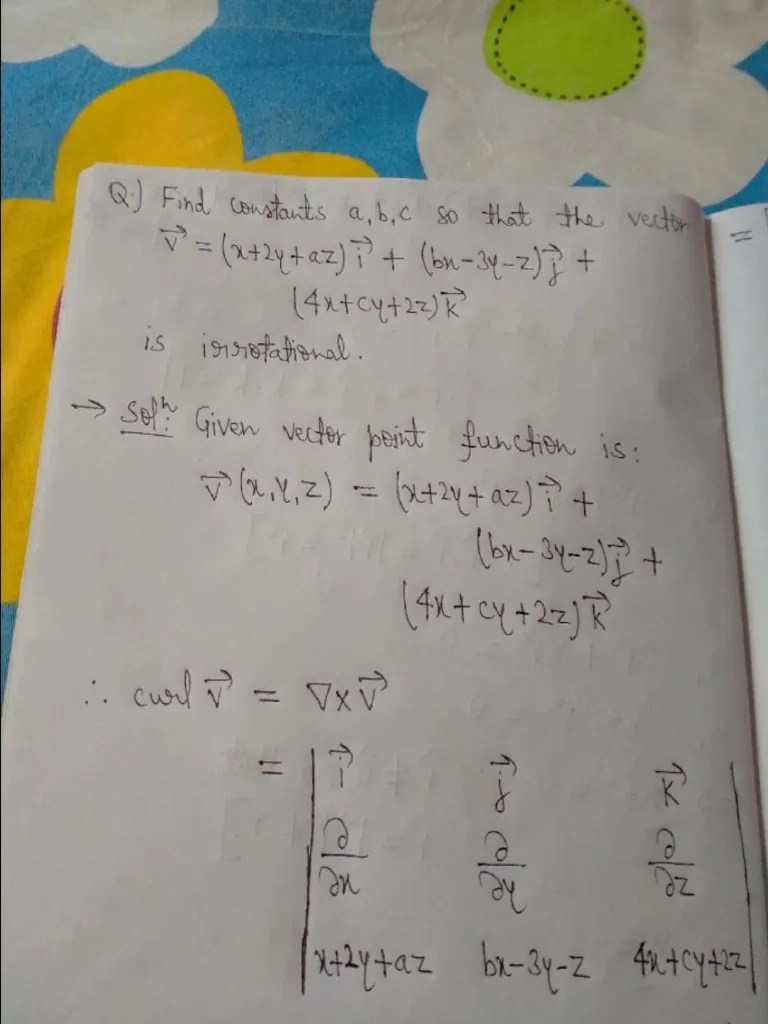 Q.) Find constants a, b, c so that the vector
v⃗ = (x+2y+az) i⃗ + (bx-3y-z) j⃗ +
(4x+cy+2z) k⃗
is irrotational.
→ Solⁿ: Given vector point function is:
v⃗ (x, y, z) = (x+2y+az) i⃗ +
(bx-3y-z) j⃗ +
(4x+cy+2z) k⃗
∴ curl v⃗ = ∇×v⃗
= | i⃗ j⃗ k⃗ |
∂/∂x ∂/∂y ∂/∂z
x+2y+az bx-3y-z 4x+cy+2z
=